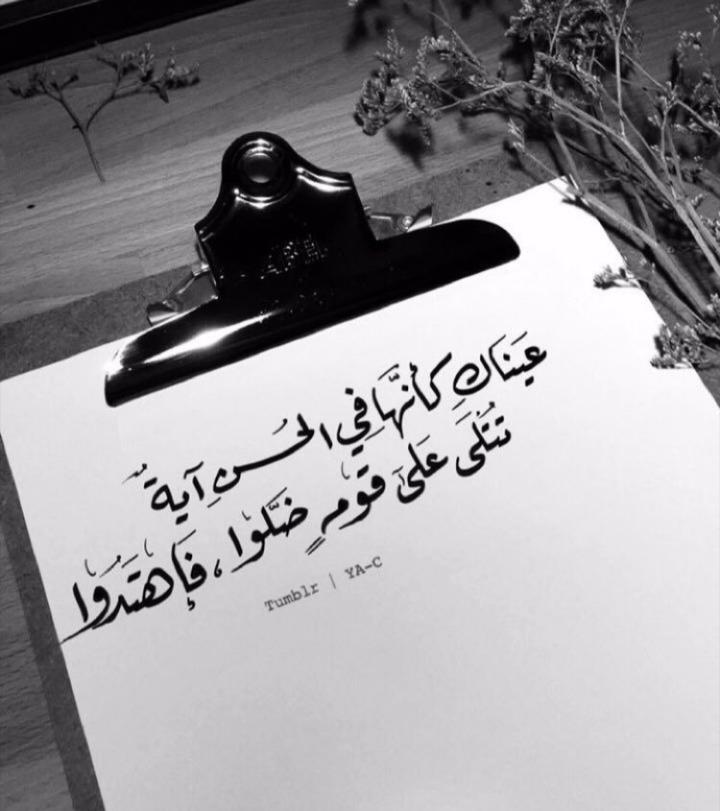 عَيَناكِ كأنَّهَا فِي الحُسنِ آيةٌ
تُتْلَى عَلَى قَوْمٍ ضَلَّوا ، فَإهتَدَوُا
Tumblr | YA-C